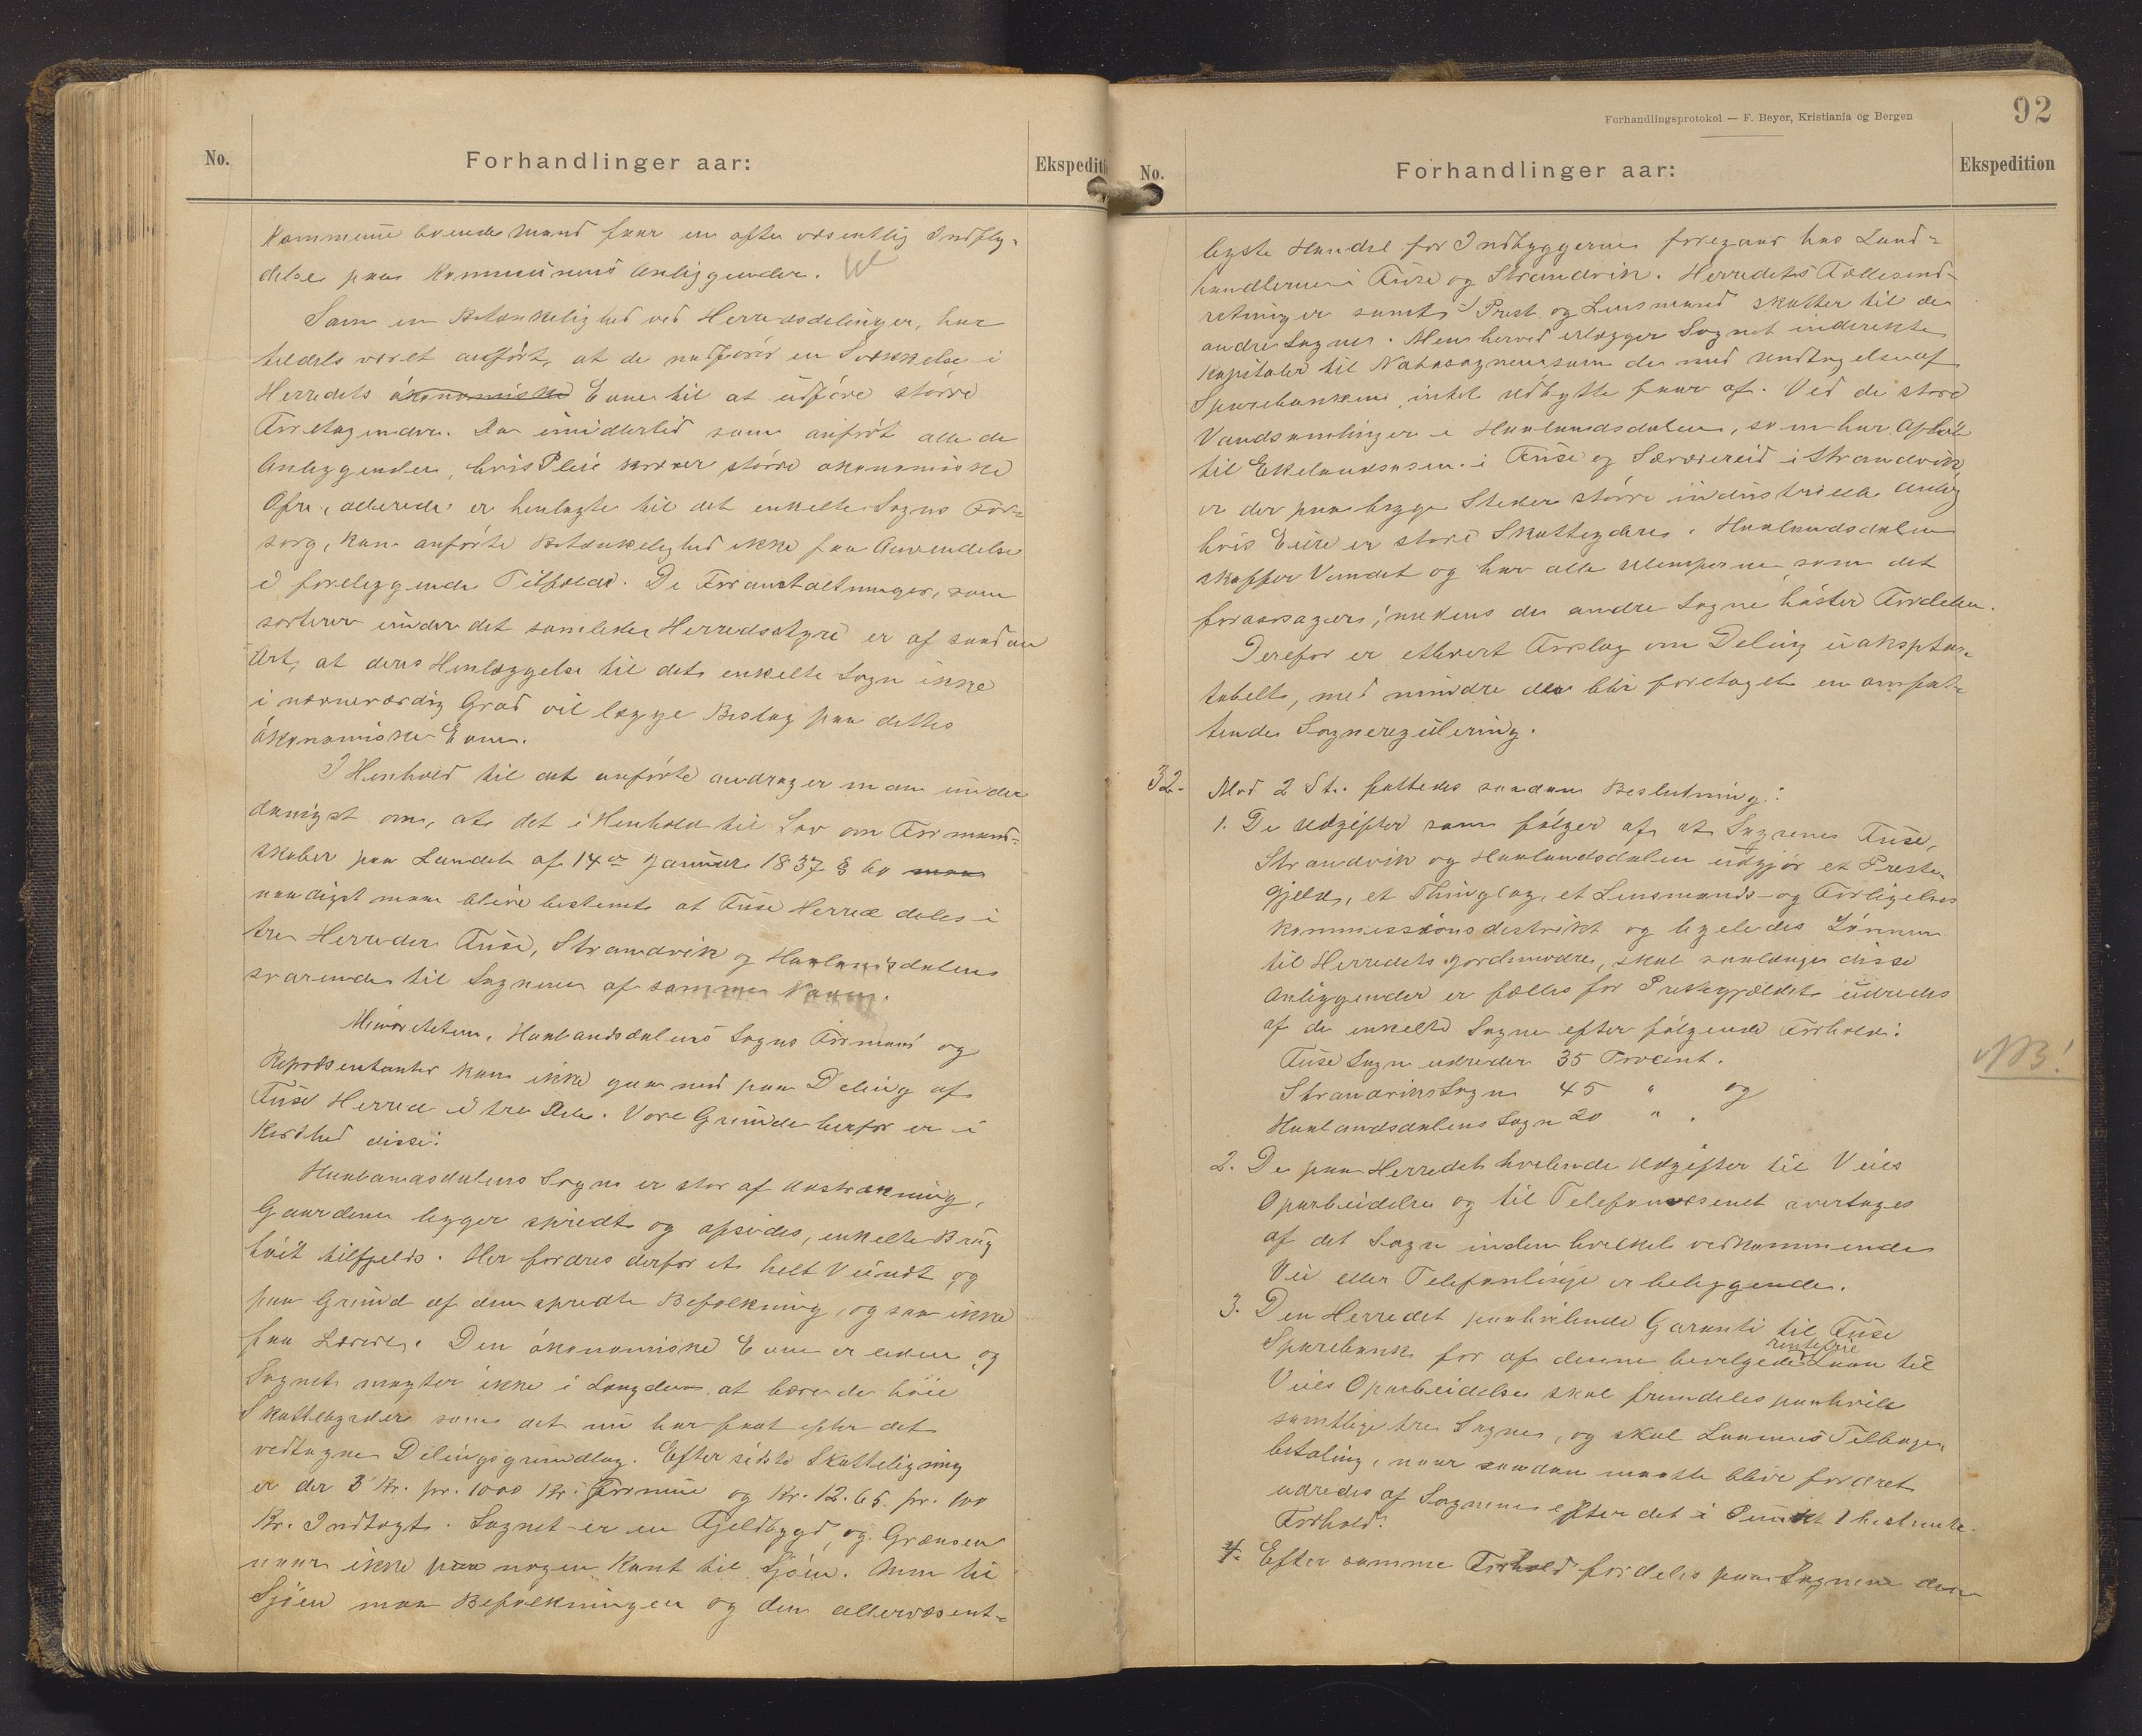 No.
Forhandlinger aar:
Ekspediti
Kommune boende Mand faar en ofte væsentlig Indfly-
delse paa Kommunens Anliggender.
Som en Betænkelighed ved Herredsdelinger, har
tildels været anført, at de medfører en Svækkelse i
Herredets økonomiske Evne til at udføre større
Foretagender. Da imidlertid som anført alle de
Anliggender, hvis Pleie kræver større økonomiske
Ofre, allerede er henlagte til det enkelte Sogns For-
sorg, kan anførte Betænkelighed ikke faa Anvendelse
i foreliggende Tilfælde. De Foranstaltninger, som
sorterer under det samlede Herredsstyre er af saadan
Art, at deres Henlæggelse til det enkelte Sogn ikke
i nævneværdig Grad vil lægge Beslag paa dettes
økonomiske Evne.
I Henhold til det anførte andrager man under
danigst om, at det i Henhold til Lov om Formand-
skaber paa Landet af 14de Januar 1837 § 60 maa
naadigst maa blive bestemt at Fuse Herred deles i
tre Herreder Fuse, Strandvik og Haalandsdalen
svarende til Sognene af samme Navn.
Minoriteten, Haalandsdalens Sogns Formænd og
Repræsentanter kan ikke gaa med paa Deling af
Fuse Herred i tre Dele. Vore Grunde herfor er i
Korthed disse:
Haalandsdalens Sogn er stor af Udstrækning,
Gaardene ligger spredt og afsides, enkelte Brug
høit tilfjelds. Her fordres derfor et helt Veinæt og
paa Grund af den spredte Befolkning, og saa ikke
faa Lærere. Den økonomiske Evne er liden og
Sognet magter ikke i Længden at bære de høie
Skattebyrder som det nu har faat efter det
vedtagne Delingsgrundlag. Efter sidste Skatteligning
er der 3 Kr. pr. 1000 Kr. Formue og Kr. 12.65 pr. 100
Kr. Indtægt. Sognet er en Fjeldbygd, og Grænsen
naar ikke paa nogen Kant til Sjøen. Men til
Sjøen maa Befolkningen og den allervæsent-
Forhandlingsprotokol — F. Beyer, Kristiania og Bergen
92
No.
Forhandlinger aar:
Ekspedition
ligste Handel for Indbyggerne foregaar hos Land-
handlerne i Fuse og Strandvik. Herredets Fællesind-
retninger samt Prest og Lensmand skatter til de
andre Sogne. Men herved erlægger Sognet indirekte
Kapitaler til Nabosognene som det med Undtagelse af
Sparebanken, intet Udbytte faar af. Ved de store
Vandsamlinger i Haalandsdalen, som har Afløb
til Ekelandsosen i Fuse og Sævareid i Strandvik,
er der paa begge Steder større industrielle Anlæg
hvis Eiere er store Skatteydere. Haalandsdalen
skaffer Vandet og har alle Ulemperne, som det
foraarsager, medens de andre Sogne høster Fordelen.
Derfor er ethvert Forslag om Deling uaksptan-
tabelt, med mindre der blir foretaget en omfat-
tende Sogneregulering.
32.
Mod 2 St. fattedes saadan Beslutning:
1. De Udgifter som følger af at Sognene Fuse,
Strandvik og Haalandsdalen udgjør et Preste-
gjeld, et Thinglag, et Lensmands- og Forligelses
kommissionsdistrikt og ligeledes Lønnen
til Herredets Jordmødre, skal saalænge disse
Anliggender er fælles for Prestegjældet udredes
af de enkelte Sogne efter følgende Forhold:
Fuse Sogn udreder 35 Procent.
Strandviks Sogn 45 " og
Haalandsdalens Sogn 20 ".
NB!
2. De paa Herredet hvilende Udgifter til Veies
Oparbeidelse og til Telefonvæsenet overtages
af det Sogn inden hvilket vedkommende
Vei eller Telefonlinje er beliggende.
3. Den Herredet paahvilende Garanti til Fuse
Sparebank for af denne bevilgede rentefrie Laan til
Veies Oparbeidelse skal fremdeles paahvile
samtlige tre Sogne, og skal Laanenes Tilbage-
betaling, naar saadan maatte blive fordret
udredes af Sognene efter det i Punkt 1 bestemte
Forhold.
4. Efter samme Forhold fordeles paa Sognene den